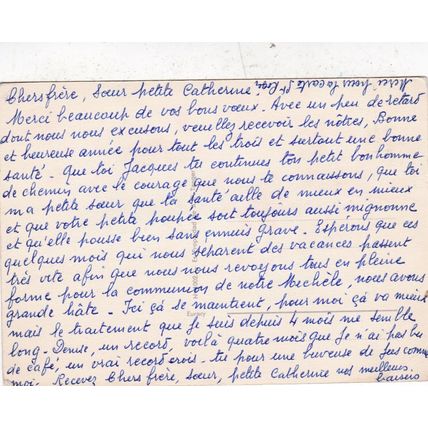 Chers frère, Sœur petite Catherine.
Merci pour la carte d
Merci beaucoup de vos bons vœux. Avec un peu de retard
dont nous nous excusons, veuillez recevoir les nôtres, Bonne
et heureuse année pour tout les trois et surtout une bonne
santé. Que toi Jacques tu continues ton petit bonhomme
de chemin avec le courage que nous te connaissons, que toi
ma petite sœur que ta santé aille de mieux en mieux
et que votre petite poupée soit toujours aussi mignonne
et qu'elle pousse bien sans ennuis grave. Espérons que ces
quelques mois qui nous séparent des vacances passent
très vite afin que nous nous revoyons tous en pleine
forme pour la communion de notre Michèle, nous avons
grande hâte. Ici ça se maintient, pour moi ça va mieux
mais le traitement que je suis depuis 4 mois me semble
long. Denise, un record, voilà quatre mois que je n'ai pas bu
de café, un vrai record crois-tu pour une buveuse de jus comme
moi. Recevez Chers frère, sœur, petite Catherine nos meilleurs
baisers